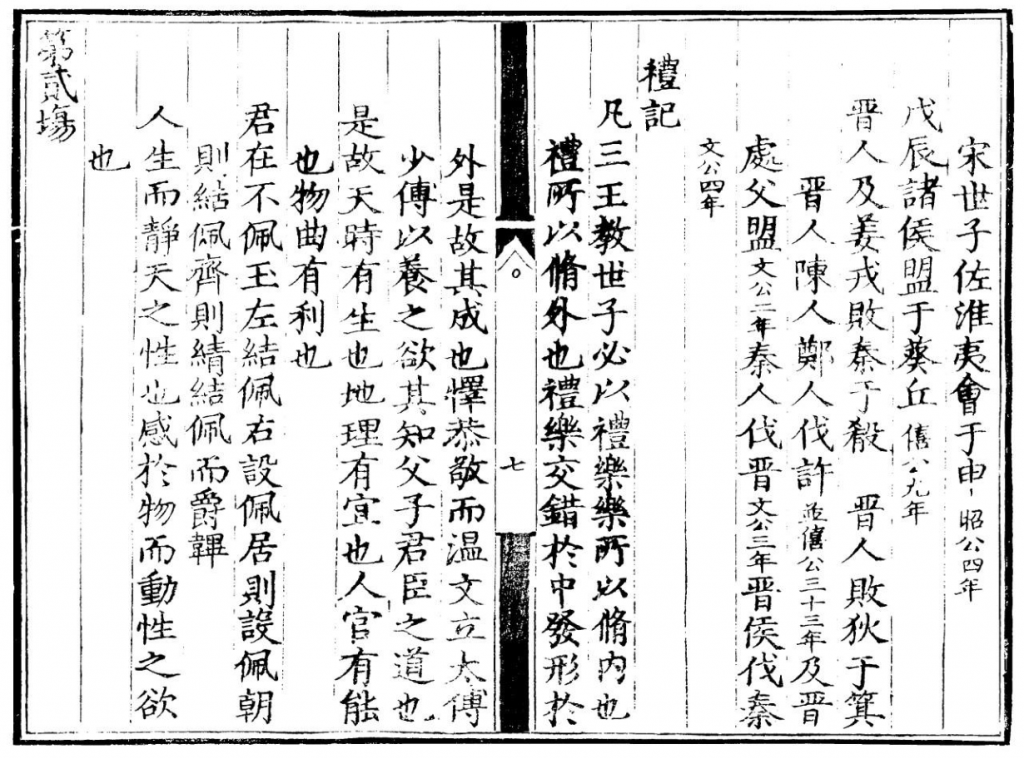 宋世子佐淮夷會于申昭公四年
戊辰諸侯盟于葵丘僖公九年
晋人及姜戎敗秦于殽 晋人敗狄于箕
晋人陳人鄭人伐許並僖公三十三年及晋
處父盟文公二年秦人伐晋文公三年晋侯伐秦
文公四年
禮記
凡三王教世子必以禮樂樂所以脩内也
禮所以脩外也禮樂交錯於中發形於
七
外是故其成也懌恭敬而温文立太傅
少傅以養之欲其知父子君臣之道也
是故天時有生也地理有宜也人官有能
也物曲有利也
君在不佩玉左結佩右設佩居則設佩朝
則結佩齊則綪結佩而爵韠
人生而靜天之性也感於物而動性之欲
也
第貳塲